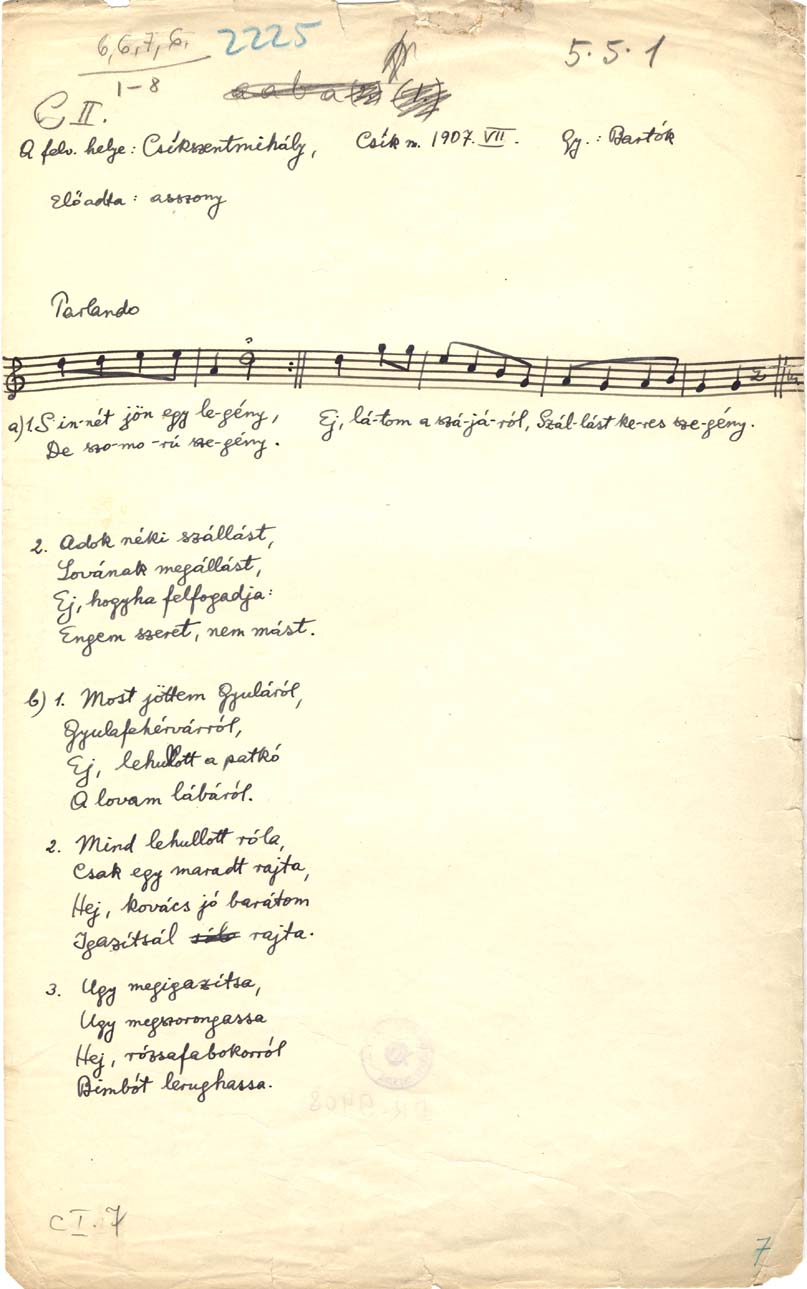 6,6,7,6. 2225 5·5·1
1-8
a a b a
C II.
A felv. helye: Csíkszentmihály, Csík m. 1907. VII. Gy.: Bartók
Előadta: asszony
Parlando
a) 1. S in-nét jön egy le-gény, Ej, lá-tom a szá-já-ról, Szál-lást ke-res sze-gény.
De szo-mo-rú sze-gény.
2. Adok néki szállást,
Lovának megállást,
Ej, hogyha felfogadja:
Engem szeret, nem mást.
b) 1. Most jöttem Gyuláról,
Gyulafehérvárról,
Ej, lehullott a patkó
A lovam lábáról.
2. Mind lehullott róla,
Csak egy maradt rajta,
Hej, kovács jó barátom
Igazítsál rajta.
3. Ugy megigazítsa,
Ugy megszorongassa
Hej, rózsafabokorról
Bimbót lerughassa.
C I. 7
7